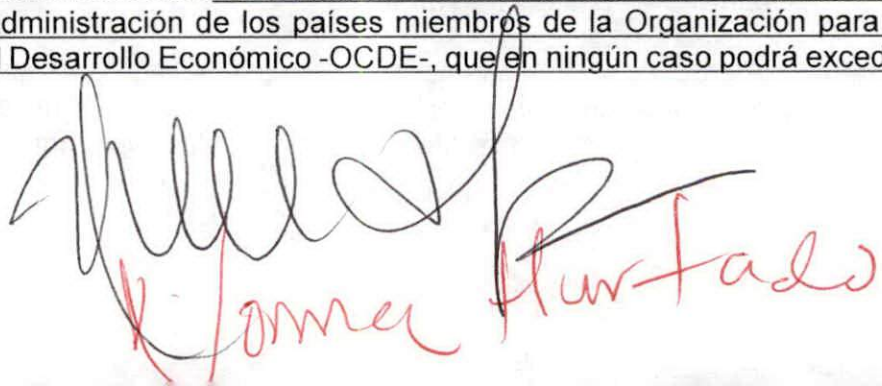 dministración de los países miembros de la Organización para
l Desarrollo Económico -OCDE-, que en ningún caso podrá exced
Norma Hurtado